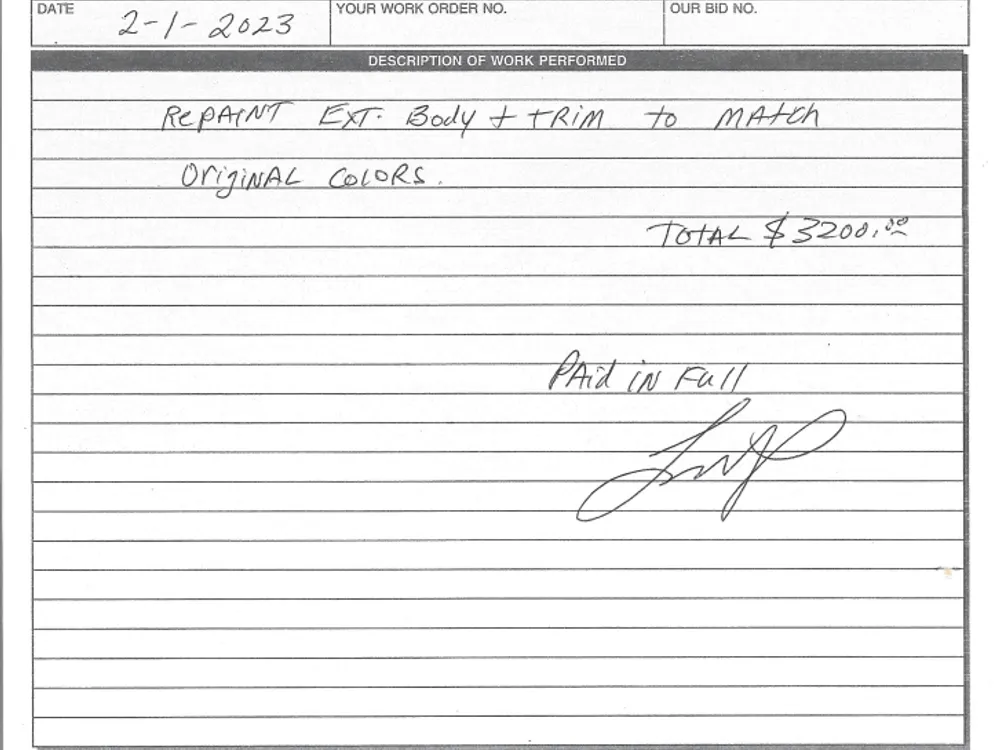 DATE
2-1-2023
YOUR WORK ORDER NO.
OUR BID NO.
DESCRIPTION OF WORK PERFORMED
RePAINT EXT. Body + TRIM to MAtch
OriginAL COLORS.
TOTAL $3200.00
PAid iN Full